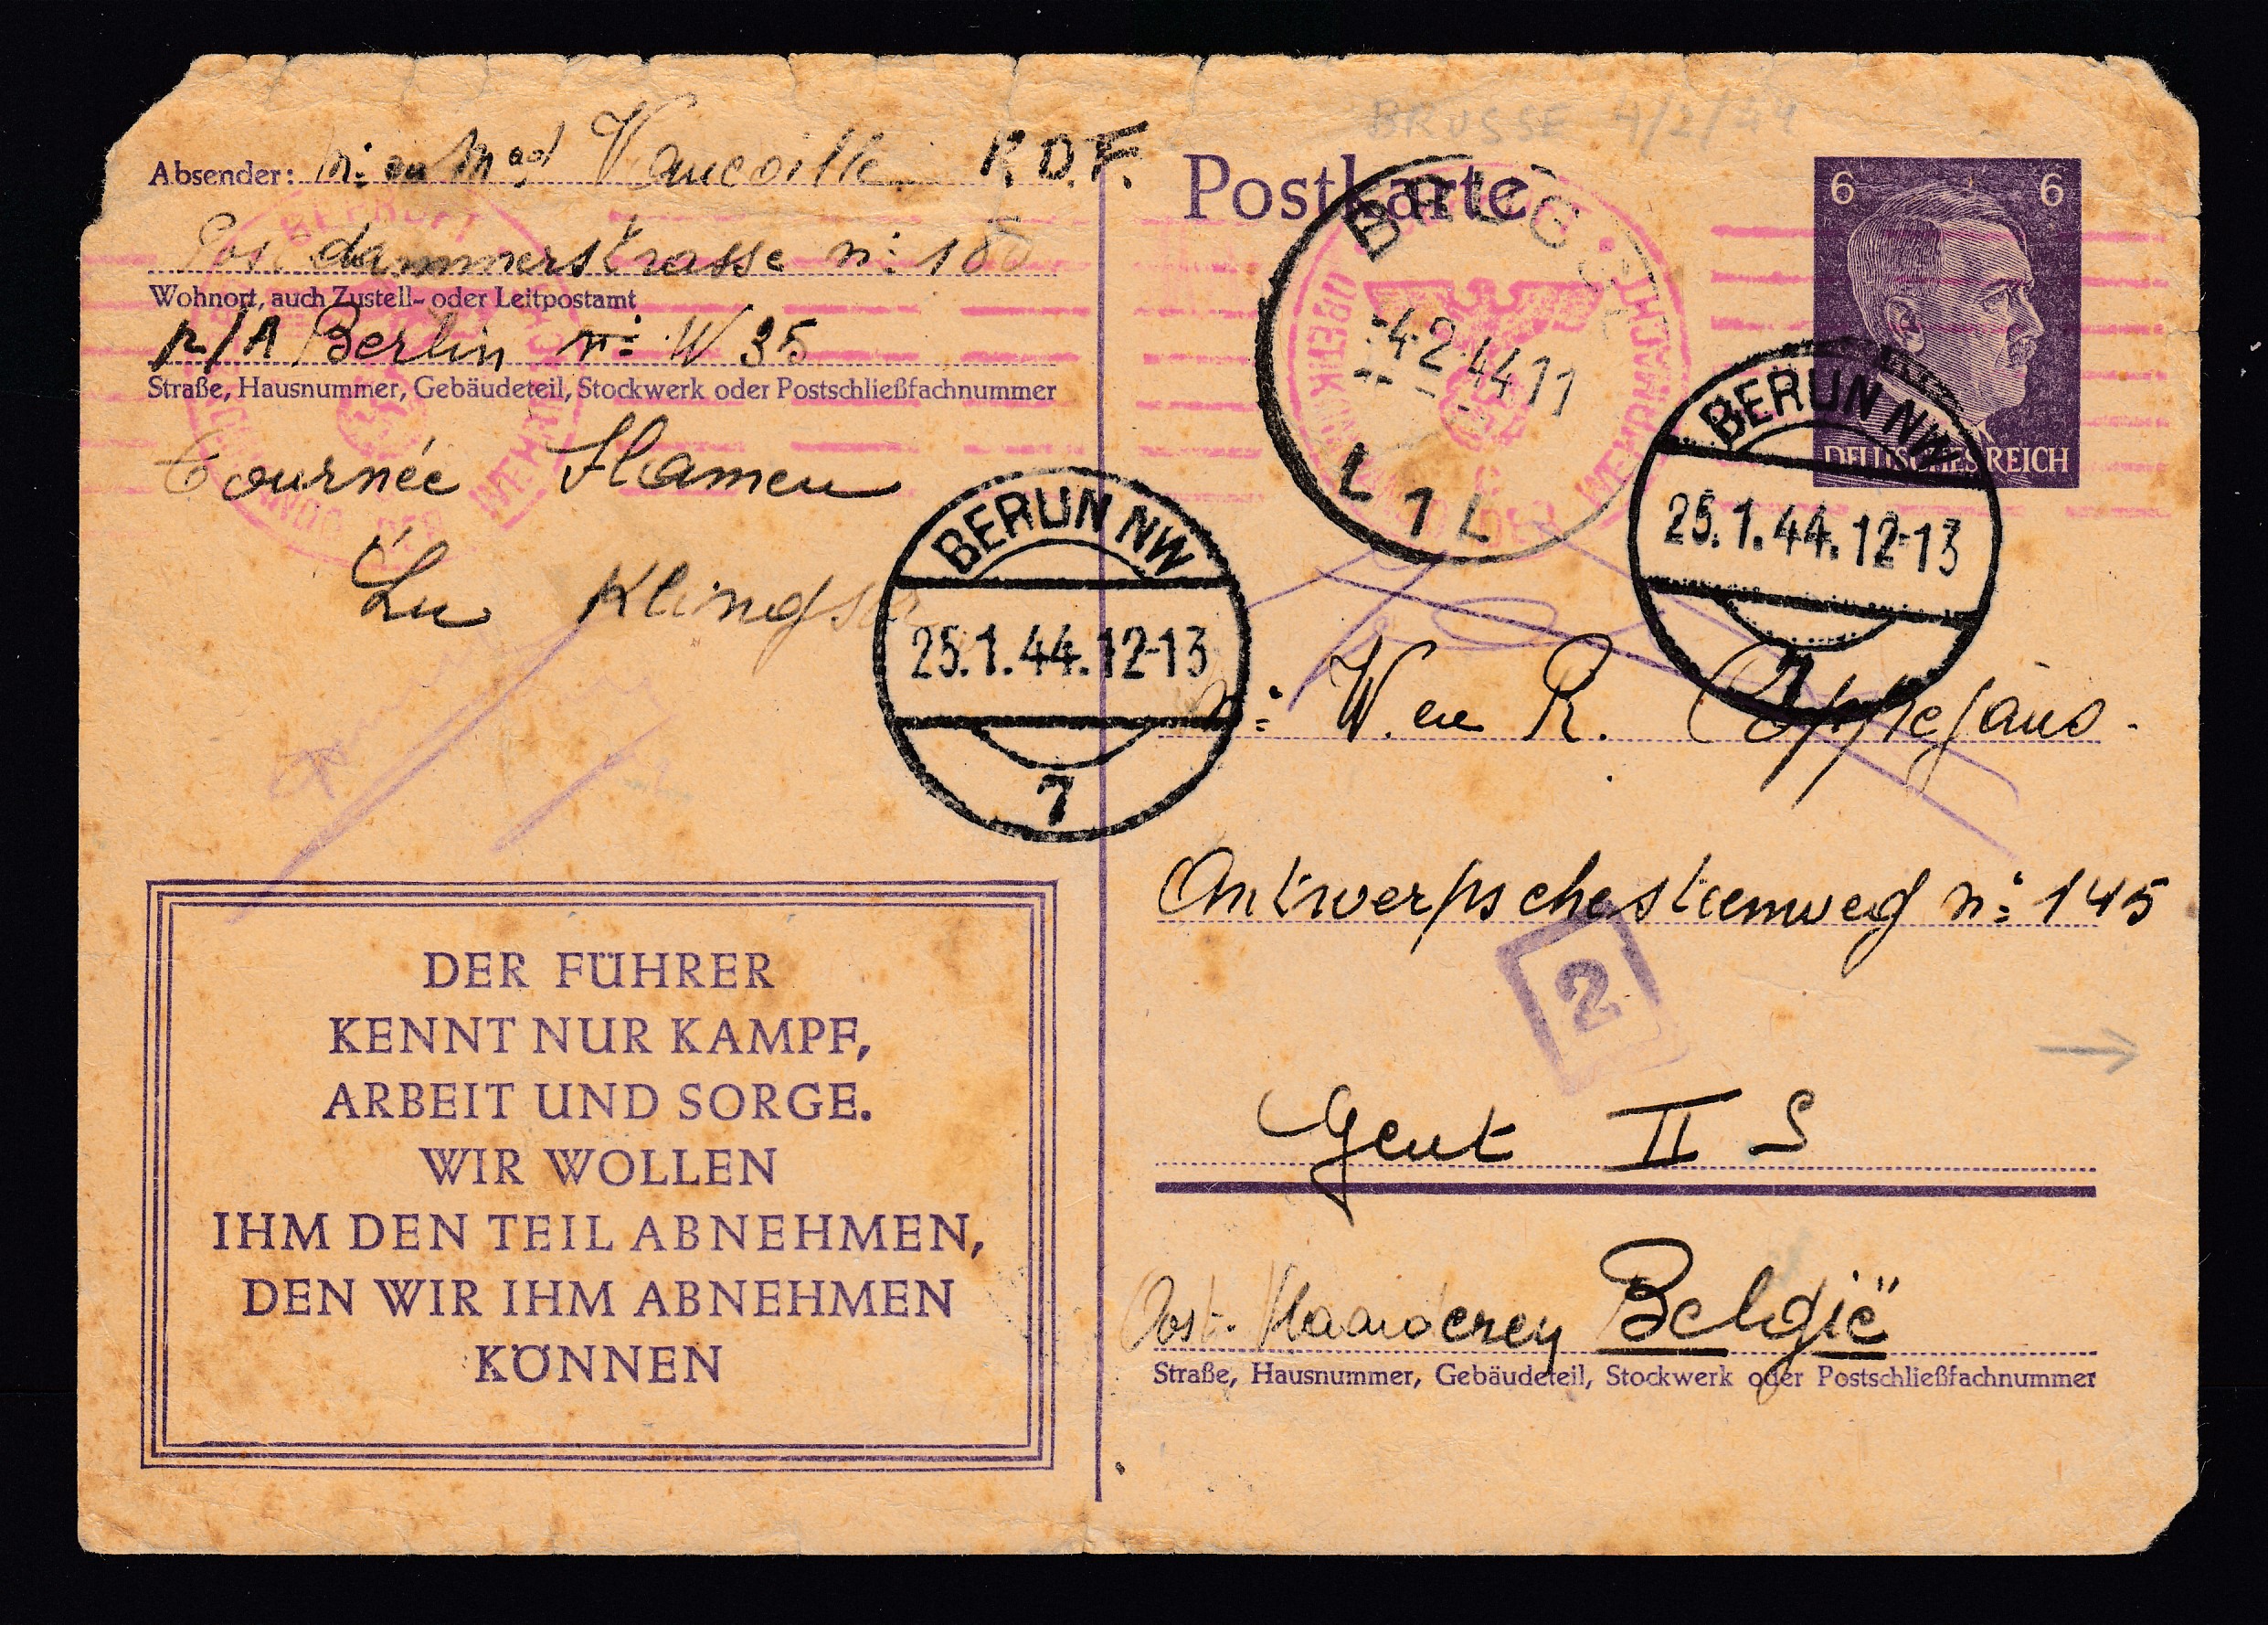 BRUSSE 4/2/44
Absender: Mr en Mad Vancoille K.D.F.
Postdammerstrasse nr: 180
Wohnort, auch Zustell- oder Leitpostamt
p/A Berlin nr: W 35
Straße, Hausnummer, Gebäudeteil, Stockwerk oder Postschließfachnummer
tournée Flamen
Lu Klingsor
DER FÜHRER
KENNT NUR KAMPF,
ARBEIT UND SORGE.
WIR WOLLEN
IHM DEN TEIL ABNEHMEN,
DEN WIR IHM ABNEHMEN
KÖNNEN
Postkarte
6 6
DEUTSCHES REICH
BRUGGE
-4.2.44 11
L 1 L
BERLIN NW
25.1.44.12-13
7
BERLIN NW
25.1.44.12-13
7
nr: W. en R.
Antwerpschesteenweg nr: 145
2
Gent II S
Oost. Vlaanderen België
Straße, Hausnummer, Gebäudeteil, Stockwerk oder Postschließfachnummer